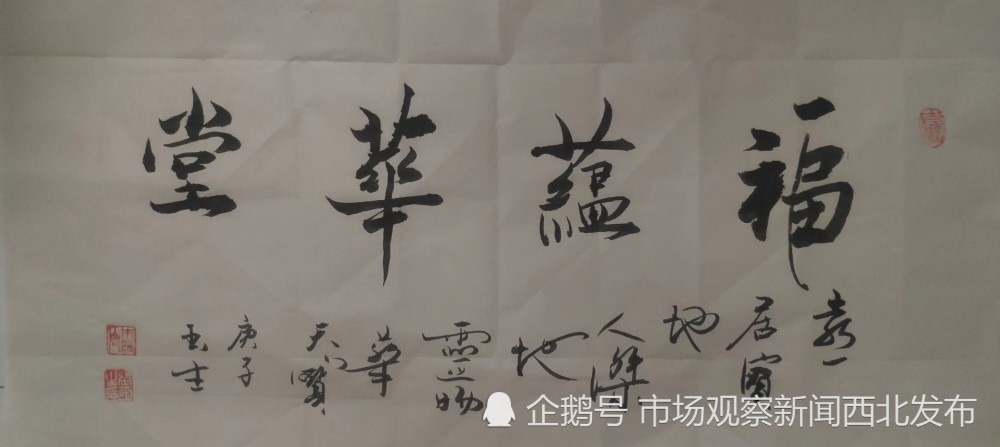 福蘊華堂
居寶
地
人傑
地
靈物
華
天寶
庚子
企鹅号 市场观察新闻西北发布